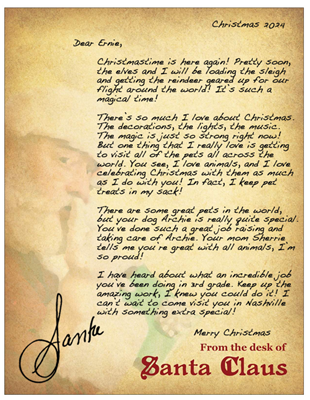 Christmas 2024
Dear Ernie,
Christmastime is here again! Pretty soon,
the elves and I will be loading the sleigh
and getting the reindeer geared up for our
flight around the world! It's such a
magical time!
There's so much I love about Christmas.
The decorations, the lights, the music.
The magic is just so strong right now!
But one thing that I really love is getting
to visit all of the pets all across the
world. You see, I love animals, and I love
celebrating Christmas with them as much
as I do with you! In fact, I keep pet
treats in my sack!
There are some great pets in the world,
but your dog Archie is really quite special.
You've done such a great job raising and
taking care of Archie. Your mom Sherrie
tells me you're great with all animals, I'm
so proud!
I have heard about what an incredible job
you've been doing in 3rd grade. Keep up the
amazing work, I knew you could do it! I
can't wait to come visit you in Nashville
with something extra special!
Merry Christmas
Santa
From the desk of
Santa Claus